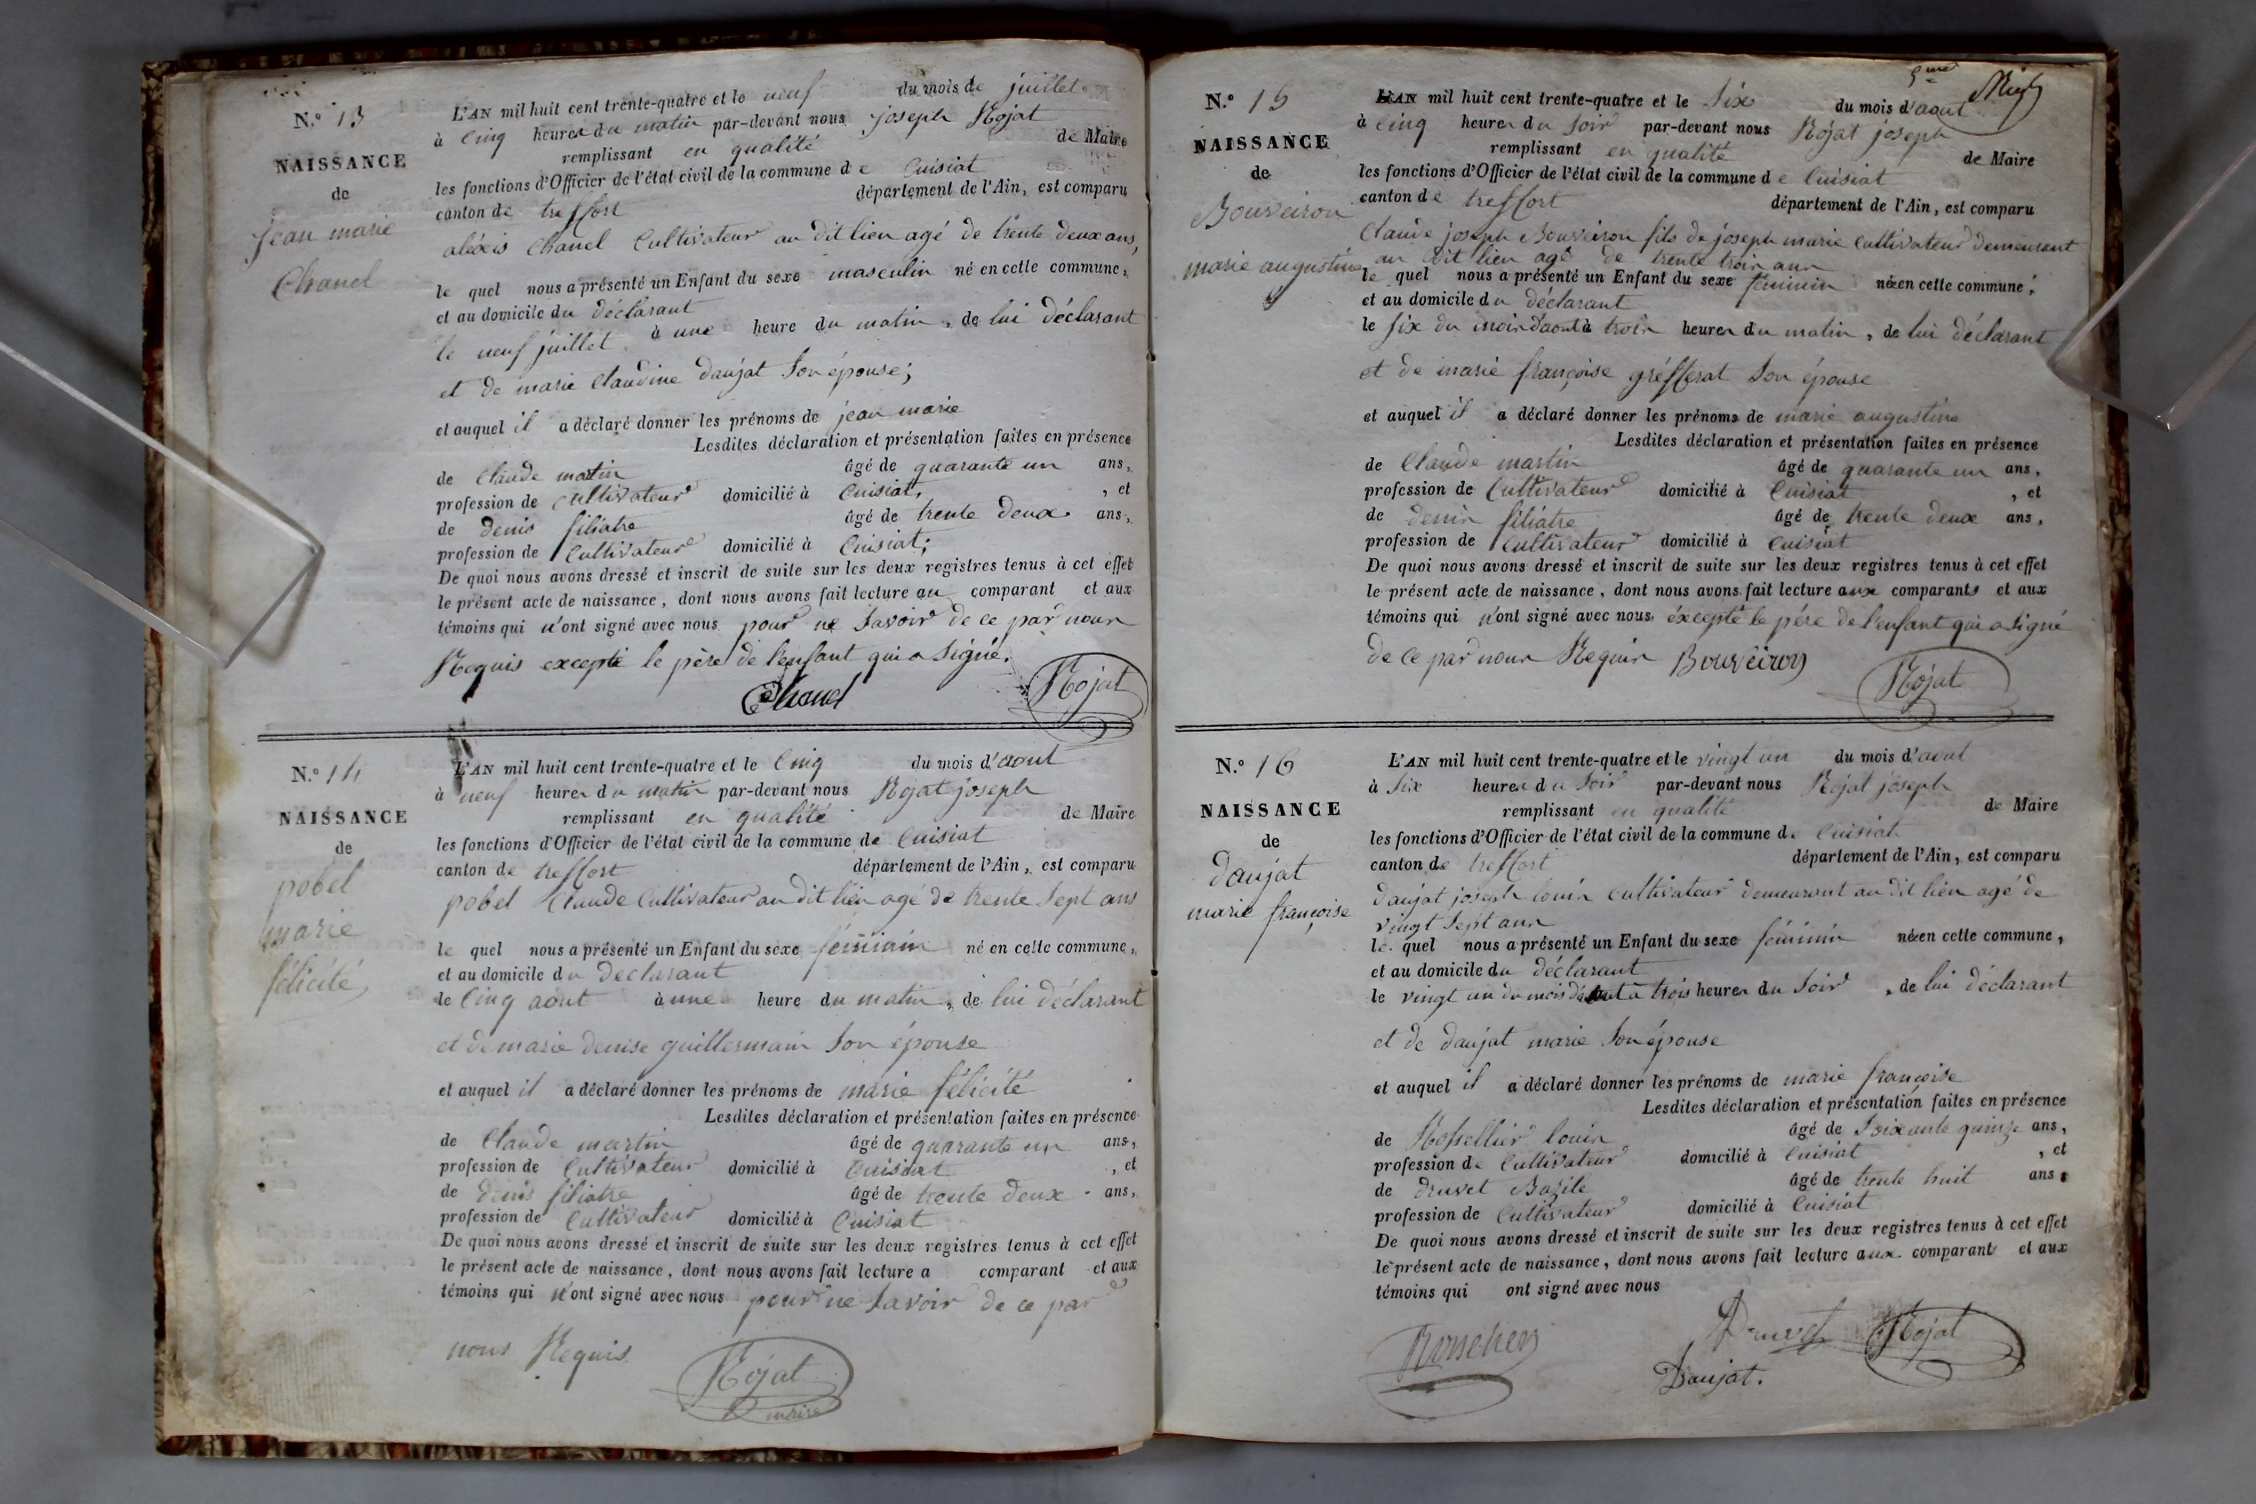 N.° 13
NAISSANCE
de
jean marie
Chanel
L'AN mil huit cent trente-quatre et le neuf du mois de juillet
à cinq heures du matin par-devant nous joseph Rojat
remplissant en qualité de Maire
les fonctions d'Officier de l'état civil de la commune de Cuisiat
canton de treffort département de l'Ain, est comparu
aléxis Chanel Cultivateur au dit lieu agé de trente deux ans,
le quel nous a présenté un Enfant du sexe masculin né en cette commune,
et au domicile du déclarant
le neuf juillet à une heure du matin, de lui déclarant
et de marie Claudine daujat son épouse;
et auquel il a déclaré donner les prénoms de jean marie
Lesdites déclaration et présentation faites en présence
de Claude martin âgé de quarante un ans,
profession de cultivateur domicilié à Cuisiat, , et
de denis filiatre âgé de trente deux ans,
profession de Cultivateur domicilié à Cuisiat;
De quoi nous avons dressé et inscrit de suite sur les deux registres tenus à cet effet
le présent acte de naissance, dont nous avons fait lecture au comparant et aux
témoins qui n'ont signé avec nous pour ne savoir de ce par nous
Requis excepté le père de l'enfant qui a signé.
Chanel Rojat
N.° 14
NAISSANCE
de
pobel
marie
félicité
L'AN mil huit cent trente-quatre et le cinq du mois d'aout
à neuf heures du matin par-devant nous Rojat joseph
remplissant en qualité de Maire
les fonctions d'Officier de l'état civil de la commune de Cuisiat
canton de treffort département de l'Ain, est comparu
pobel Claude Cultivateur au dit lieu agé de trente sept ans
le quel nous a présenté un Enfant du sexe féminin né en cette commune,
et au domicile du declarant
le cinq aout à une heure du matin, de lui déclarant
et de marie denise guillermain son épouse
et auquel il a déclaré donner les prénoms de marie félicité
Lesdites déclaration et présentation faites en présence
de Claude martin âgé de quarante un ans,
profession de Cultivateur domicilié à Cuisiat , et
de denis filiatre âgé de trente deux ans,
profession de Cultivateur domicilié à Cuisiat
De quoi nous avons dressé et inscrit de suite sur les deux registres tenus à cet effet
le présent acte de naissance, dont nous avons fait lecture a comparant et aux
témoins qui n'ont signé avec nous pour ne savoir de ce par
nous Requis
Rojat
maire
5me
N.° 15
NAISSANCE
de
Bouveiron
marie augustine
L'AN mil huit cent trente-quatre et le six du mois d'aout
à cinq heures du soir par-devant nous Rojat joseph
remplissant en qualité de Maire
les fonctions d'Officier de l'état civil de la commune de Cuisiat
canton de treffort département de l'Ain, est comparu
Claude joseph Bouveiron fils de joseph marie cultivateur demeurant
au dit lieu agé de trente trois ans
le quel nous a présenté un Enfant du sexe féminin née en cette commune,
et au domicile du déclarant
le six du mois d'aout à trois heures du matin, de lui déclarant
et de marie françoise grefferat son épouse
et auquel il a déclaré donner les prénoms de marie augustine
Lesdites déclaration et présentation faites en présence
de Claude martin âgé de quarante un ans,
profession de Cultivateur domicilié à Cuisiat , et
de denis filiatre âgé de trente deux ans,
profession de Cultivateur domicilié à Cuisiat
De quoi nous avons dressé et inscrit de suite sur les deux registres tenus à cet effet
le présent acte de naissance, dont nous avons fait lecture aux comparants et aux
témoins qui n'ont signé avec nous excepté le père de l'enfant qui a signé
de ce par nous Requis Bouveiron Rojat
N.° 16
NAISSANCE
de
daujat
marie françoise
L'AN mil huit cent trente-quatre et le vingt un du mois d'aout
à six heures du soir par-devant nous Rojat joseph
remplissant en qualité de Maire
les fonctions d'Officier de l'état civil de la commune de Cuisiat
canton de treffort département de l'Ain, est comparu
daujat joseph louis cultivateur demeurant au dit lieu agé de
vingt sept ans
le quel nous a présenté un Enfant du sexe féminin née en cette commune,
et au domicile du déclarant
le vingt un du mois d'aout à trois heures du soir, de lui déclarant
et de daujat marie son épouse
et auquel il a déclaré donner les prénoms de marie françoise
Lesdites déclaration et présentation faites en présence
de Rossellier louis âgé de soixante quinze ans,
profession de Cultivateur domicilié à Cuisiat , et
de druvet Bazile âgé de trente huit ans,
profession de Cultivateur domicilié à Cuisiat
De quoi nous avons dressé et inscrit de suite sur les deux registres tenus à cet effet
le présent acte de naissance, dont nous avons fait lecture aux comparant et aux
témoins qui ont signé avec nous
Druvet Rojat
Daujat.